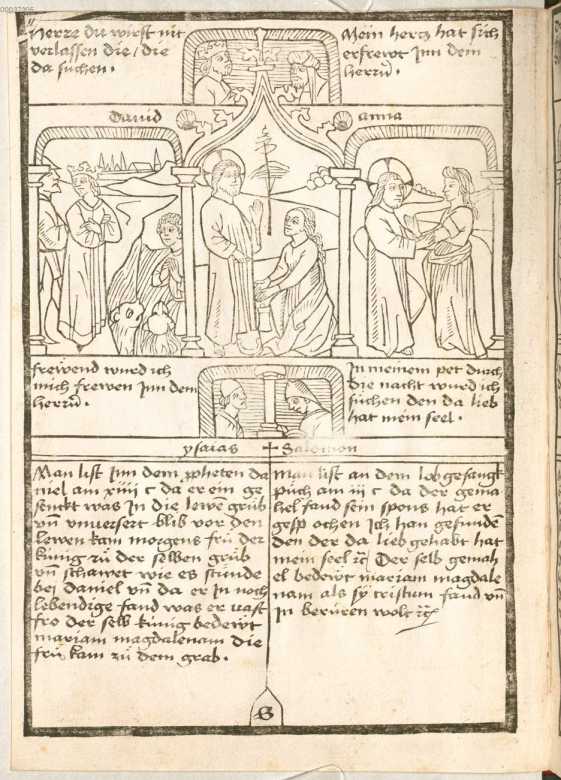 00037995
Herre du wirst nit
verlassen die / die
da suchen ·
Mein hertz hat sich
erfrewt Inn dem
herrn̄ ·
David
anna
frewend wurd ich
mich frewen Inn dem
herrn̄ ·
In meinem pet durch
die nacht wurd ich
suchen den da lieb
hat mein seel ·
ysaias
Salomon
Man list Inn dem propheten da
niel am xiiii c da er ein ge
senckt was In die lewe grůb
vn̄ unversert blib vor den
lewen kam morgens frů der
kunig zů der selben grůb
vn̄ schawet wie es stunde
bei daniel vn̄ da er in noch
lebendige fand was er vast
fro der selb kunig bedewt
mariam magdalenam die
frů kam zů dem grab ·
Man list an dem lob gesangk
puch am iii c da der gema
hel fand sein spons hat er
gesprochen Ich han gefunden̄
den der da lieb gehabt hat
mein seel ꝛc Der selb gemah
el bedewt mariam magdale
nam als sy cristum fand vn̄
In beruren wolt ꝛc